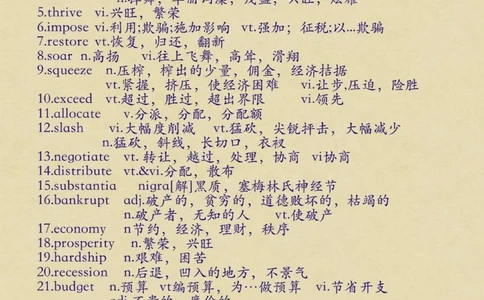 5.thrive vi.兴旺，繁荣
6.impose vi.利用;欺骗;施加影响 vt.强加；征税;以...欺骗
7.restore vt.恢复，归还，翻新
8.soar n.高扬 vi.往上飞舞，高耸，滑翔
9.squeeze n.压榨，榨出的少量，佣金，经济拮据
vt.紧握，挤压，使经济困难 vi.让步.压迫，险胜
10.exceed vt.超过，胜过，超出界限 vi.领先
11.allocate v.分派，分配，分配额
12.slash vi.大幅度削减 vt.猛砍，尖锐抨击，大幅减少
n.猛砍，斜线，长切口，衣衩
13.negotiate vt. 转让，越过，处理，协商 vi协商
14.distribute vt.&vi.分配，散布
15.substantia nigra[解]黑质，塞梅林氏神经节
16.bankrupt adj.破产的，贫穷的，道德败坏的，枯竭的
n.破产者，无知的人 vt.使破产
17.economy n节约，经济，理财，秩序
18.prosperity n.繁荣，兴旺
19.hardship n.艰难，困苦
20.recession n.后退，凹入的地方，不景气
21.budget n.预算 vt编预算，为…做预算 vi.节省开支